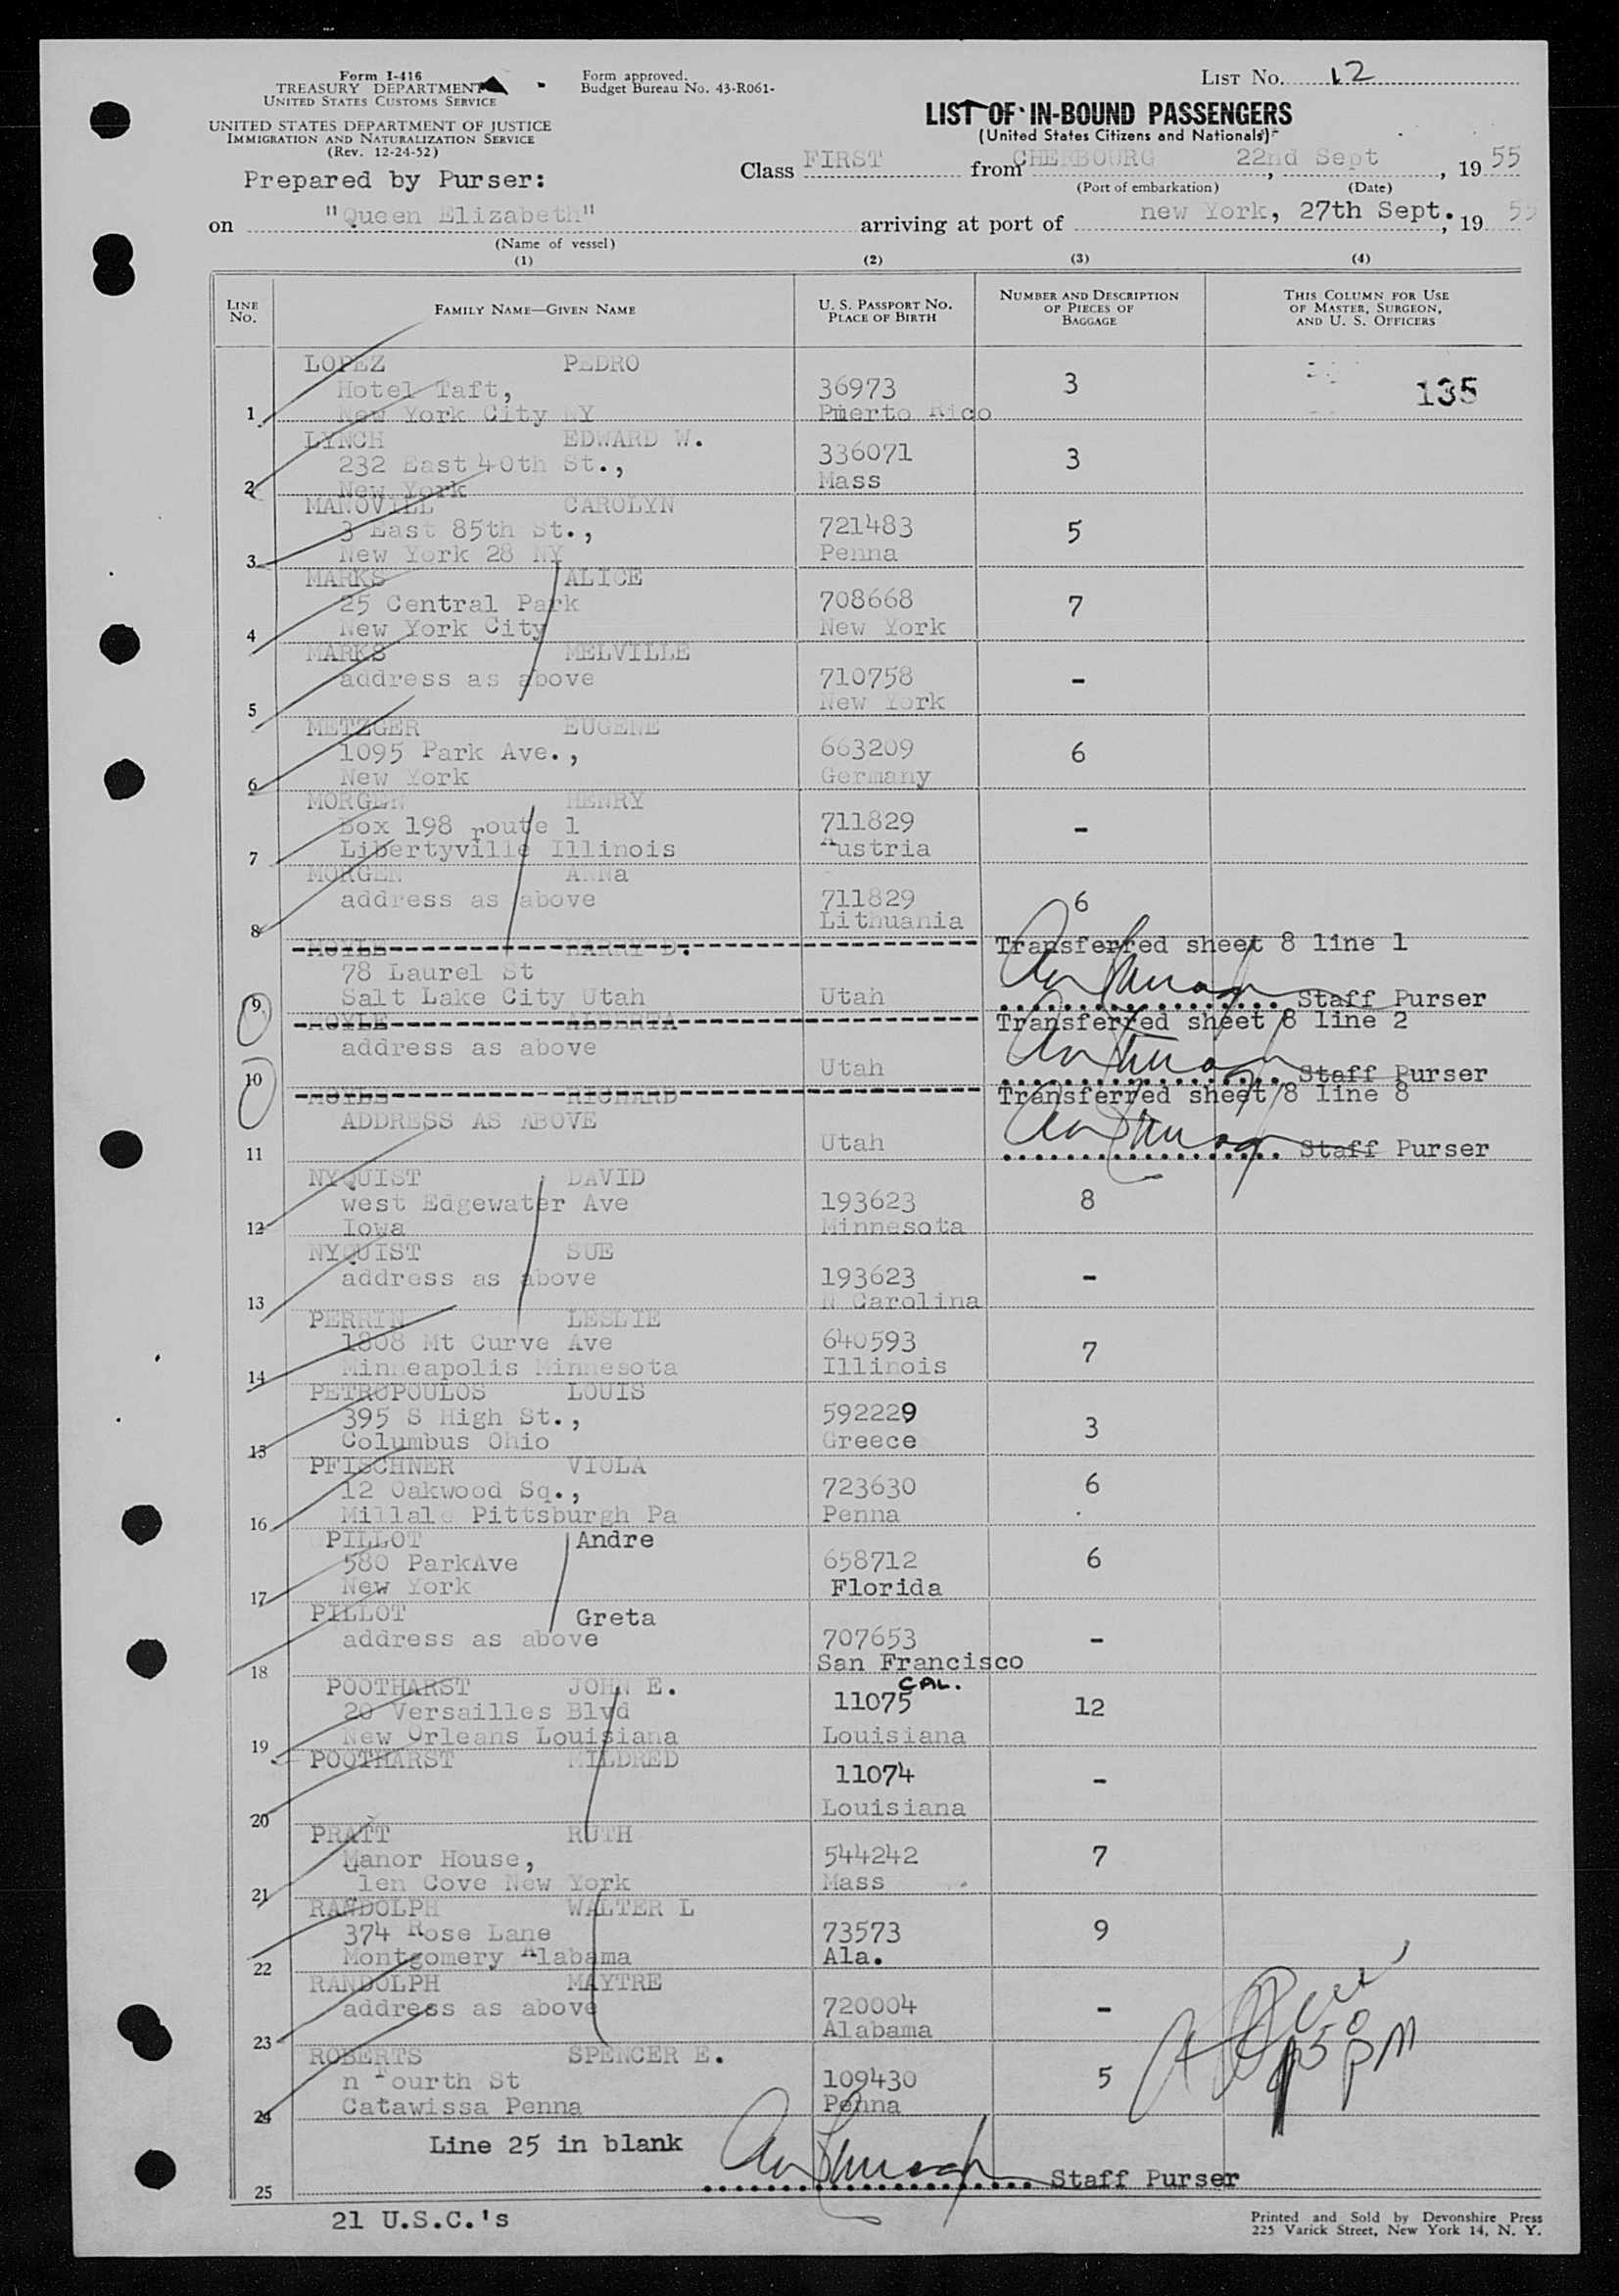 Form I-416
TREASURY DEPARTMENT
UNITED STATES CUSTOMS SERVICE
UNITED STATES DEPARTMENT OF JUSTICE
IMMIGRATION AND NATURALIZATION SERVICE
(Rev. 12-24-52)
Form approved.
Budget Bureau No. 43-R061-
LIST No. 12
LIST OF IN-BOUND PASSENGERS
(United States Citizens and Nationals)
Prepared by Purser:
Class FIRST from CHERBOURG, 22nd Sept, 1955
(Port of embarkation) (Date)
on "Queen Elizabeth" arriving at port of new York, 27th Sept., 1955
(Name of vessel)
(1) (2) (3) (4)
LINE No.
FAMILY NAME—GIVEN NAME
U. S. PASSPORT NO.
PLACE OF BIRTH
NUMBER AND DESCRIPTION
OF PIECES OF
BAGGAGE
THIS COLUMN FOR USE
OF MASTER, SURGEON,
AND U. S. OFFICERS
LOPEZ PEDRO
Hotel Taft, 36973 3 135
1 New York City NY Puerto Rico
LYNCH EDWARD W.
232 East 40th St., 336071 3
2 New York Mass
MANOVILL CAROLYN
3 East 85th St., 721483 5
3 New York 28 NY Penna
MARKS ALICE
25 Central Park 708668 7
4 New York City New York
MARKS MELVILLE
address as above 710758 -
5 New York
METZGER EUGENE
1095 Park Ave., 663209 6
6 New York Germany
MORGEN HENRY
Box 198 route 1 711829 -
7 Libertyville Illinois Austria
MORGEN ANNa
address as above 711829 6
8 Lithuania
HOYLE HARRY D. Transferred sheet 8 line 1
78 Laurel St
9 Salt Lake City Utah Utah Staff Purser
HOYLE ALBERTA Transferred sheet 8 line 2
address as above
10 Utah Staff Purser
HOYLE RICHARD Transferred sheet 8 line 8
ADDRESS AS ABOVE
11 Utah Staff Purser
NYQUIST DAVID
west Edgewater Ave 193623 8
12 Iowa Minnesota
NYQUIST SUE
address as above 193623 -
13 N Carolina
PERRIN LESLIE
1808 Mt Curve Ave 640593 7
14 Minneapolis Minnesota Illinois
PETROPOULOS LOUIS
395 S High St., 592229 3
15 Columbus Ohio Greece
PFISCHNER VIOLA
12 Oakwood Sq., 723630 6
16 Millale Pittsburgh Pa Penna
PILLOT Andre
580 ParkAve 658712 6
17 New York Florida
PILLOT Greta
address as above 707653 -
18 San Francisco
CAL.
POOTHARST JOHN E.
20 Versailles Blvd 11075 12
19 New Orleans Louisiana Louisiana
POOTHARST MILDRED
11074 -
20 Louisiana
PRATT RUTH
Manor House, 544242 7
21 len Cove New York Mass
RANDOLPH WALTER L
374 Rose Lane 73573 9
22 Montgomery Alabama Ala.
RANDOLPH MAYTRE
address as above 720004 -
23 Alabama
ROBERTS SPENCER E.
n Fourth St 109430 5
24 Catawissa Penna Penna
PM
Line 25 in blank
25 Staff Purser
21 U.S.C.'s
Printed and Sold by Devonshire Press
225 Varick Street, New York 14, N. Y.